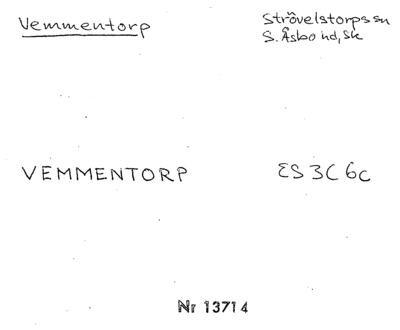 Vemmentorp
Strövelstorps sn
S. Åsbo hd, Sk
VEMMENTORP
ES 3C 6c
Nr 13714